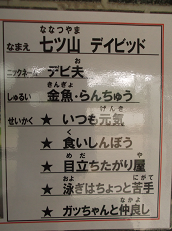 ななつやま
なまえ 七ツ山 デイビッド
お
ニックネーム デビ夫
きんぎょ
しゅるい 金魚・らんちゅう
げんき
せいかく ★ いつも元気
く
★ 食いしんぼう
めだ や
★ 目立ちたがり屋
およ にがて
★ 泳ぎはちょっと苦手
なかよ
★ ガッちゃんと仲良し